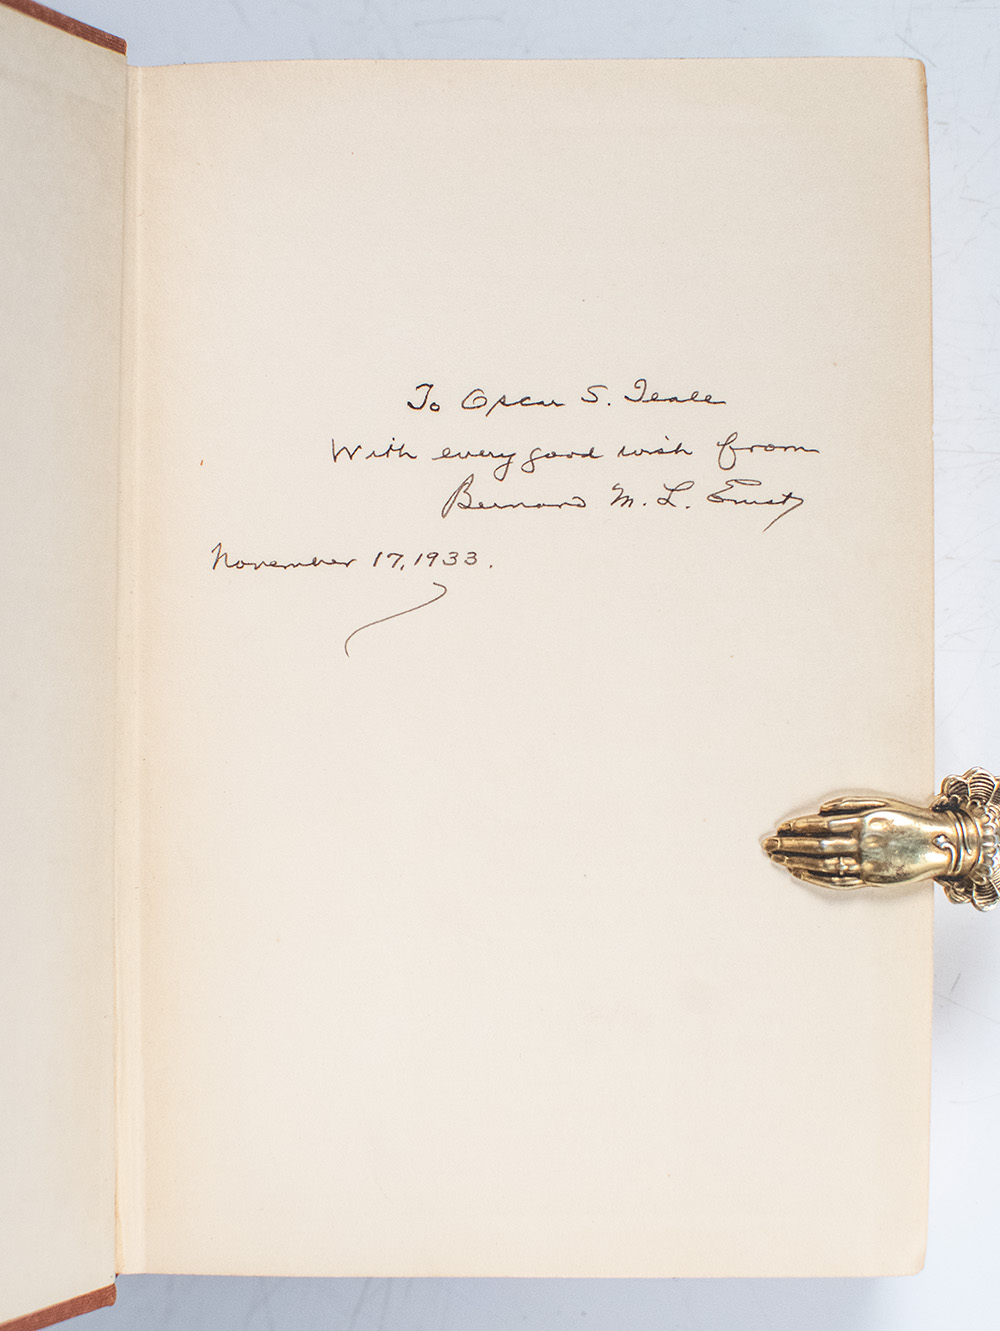 To Oscar S. Teale
With every good wish from
Bernard M. L. Ernst
November 17, 1933.